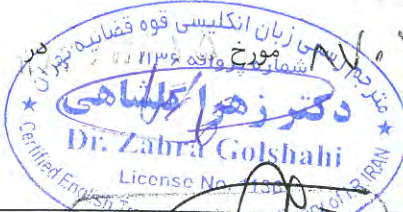 مترجم رسمی زبان انگلیسی قوه قضاییه تهران
شماره پروانه ۱۱۳۶
مورخ
در
دکتر زهرا گلشاهی
Dr. Zahra Golshahi
License No. 1136
Certified English
OF I.R. IRAN